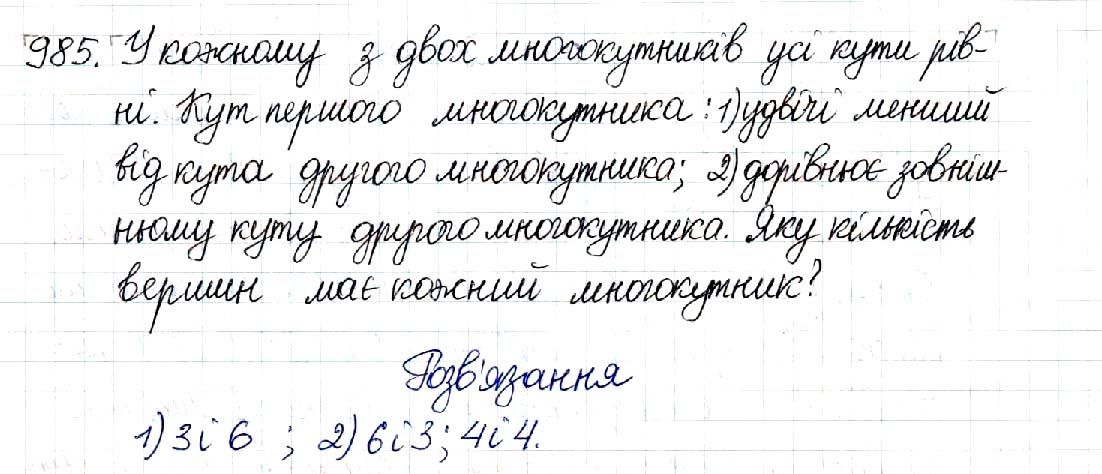 985. У кожному з двох многокутників усі кути рів-
ні. Кут першого многокутника: 1) удвічі менший
від кута другого многокутника; 2) дорівнює зовніш-
ньому куту другого многокутника. Яку кількість
вершин має кожний многокутник?
Розв'язання
1) 3 і 6 ; 2) 6 і 3; 4 і 4.